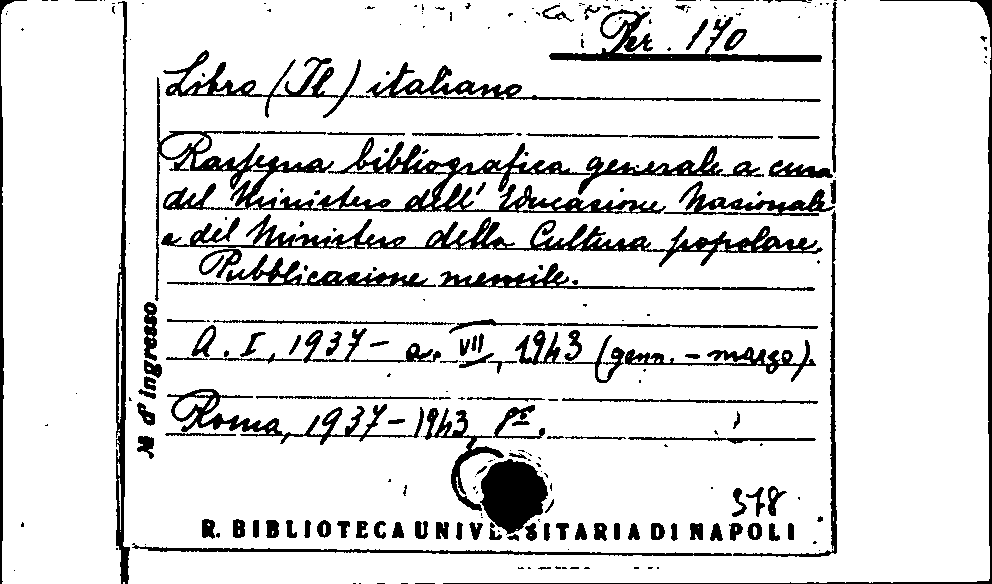 Per. 170
Libro (Il) italiano.
Rassegna bibliografica generale a cura
del Ministero dell' Educazione Nazionale
e del Ministero della Cultura popolare.
Pubblicazione mensile.
A. I, 1937 - a. VII, 1943 (genn. - marzo).
Roma, 1937 - 1943, 8º.
378
N. d'ingresso
R. BIBLIOTECA UNIVERSITARIA DI NAPOLI